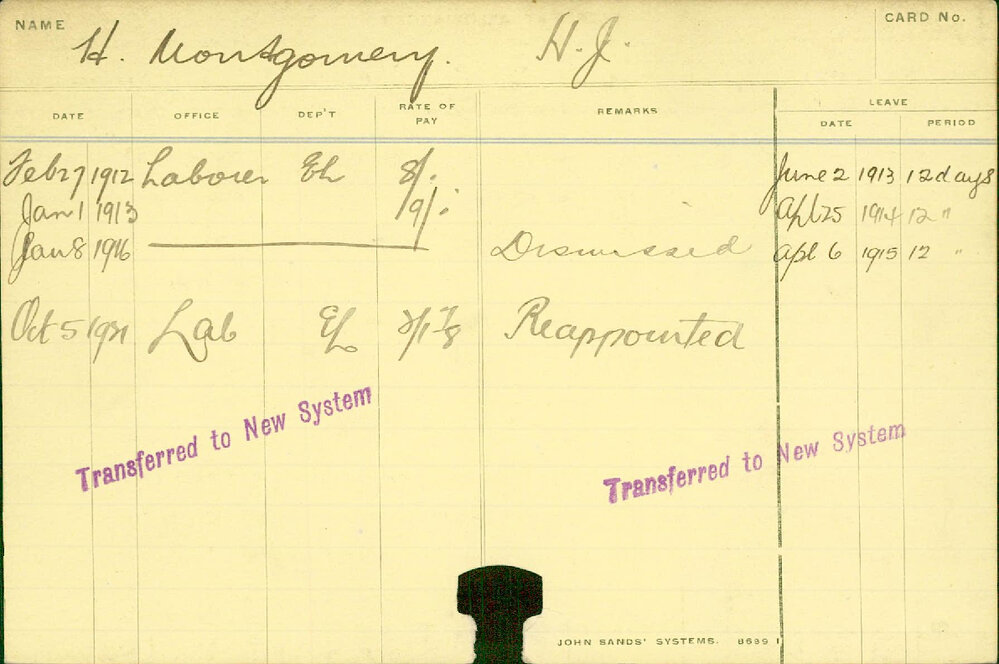 NAME H. Montgomery. H. J. CARD No.
DATE OFFICE DEP'T RATE OF PAY REMARKS LEAVE
DATE PERIOD
Feb 27 1912 Laborer Eh 8/. June 2 1913 12 days
Jan 1 1913 9/. Apl 25 1914 12 "
Jan 8 1916 Dismissed Apl 6 1915 12 "
Oct 5 Lab Eh Reappointed
Transferred to New System
Transferred to New System
JOHN SANDS' SYSTEMS. 8699 1